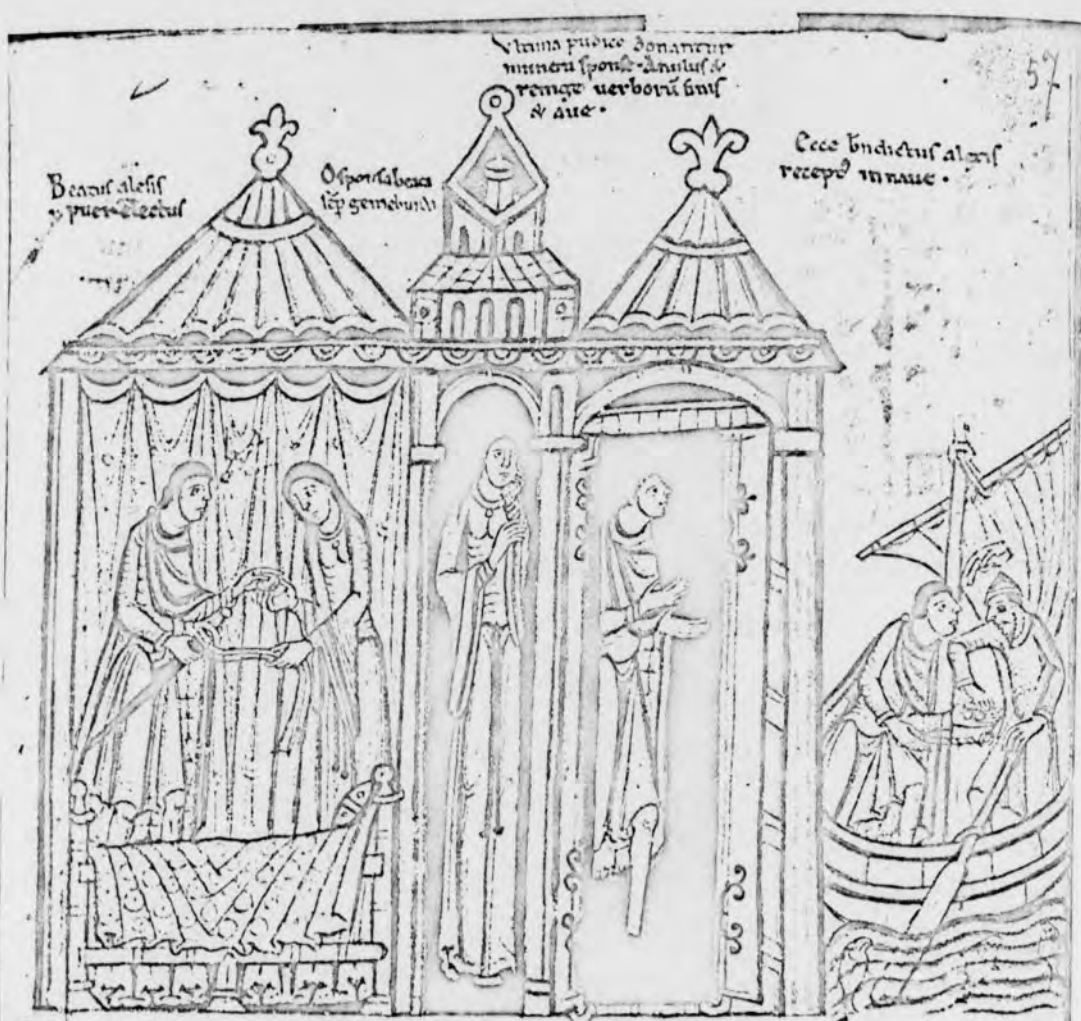 Vltima pudice donantur
munera sponse · Anulus &
renige verborū finis
& aue ·
57
Beatus alexis
puer electus
O sponsa beata
sēp gemebunda
Ecce bndictus alexis
recept⁹ in naue ·